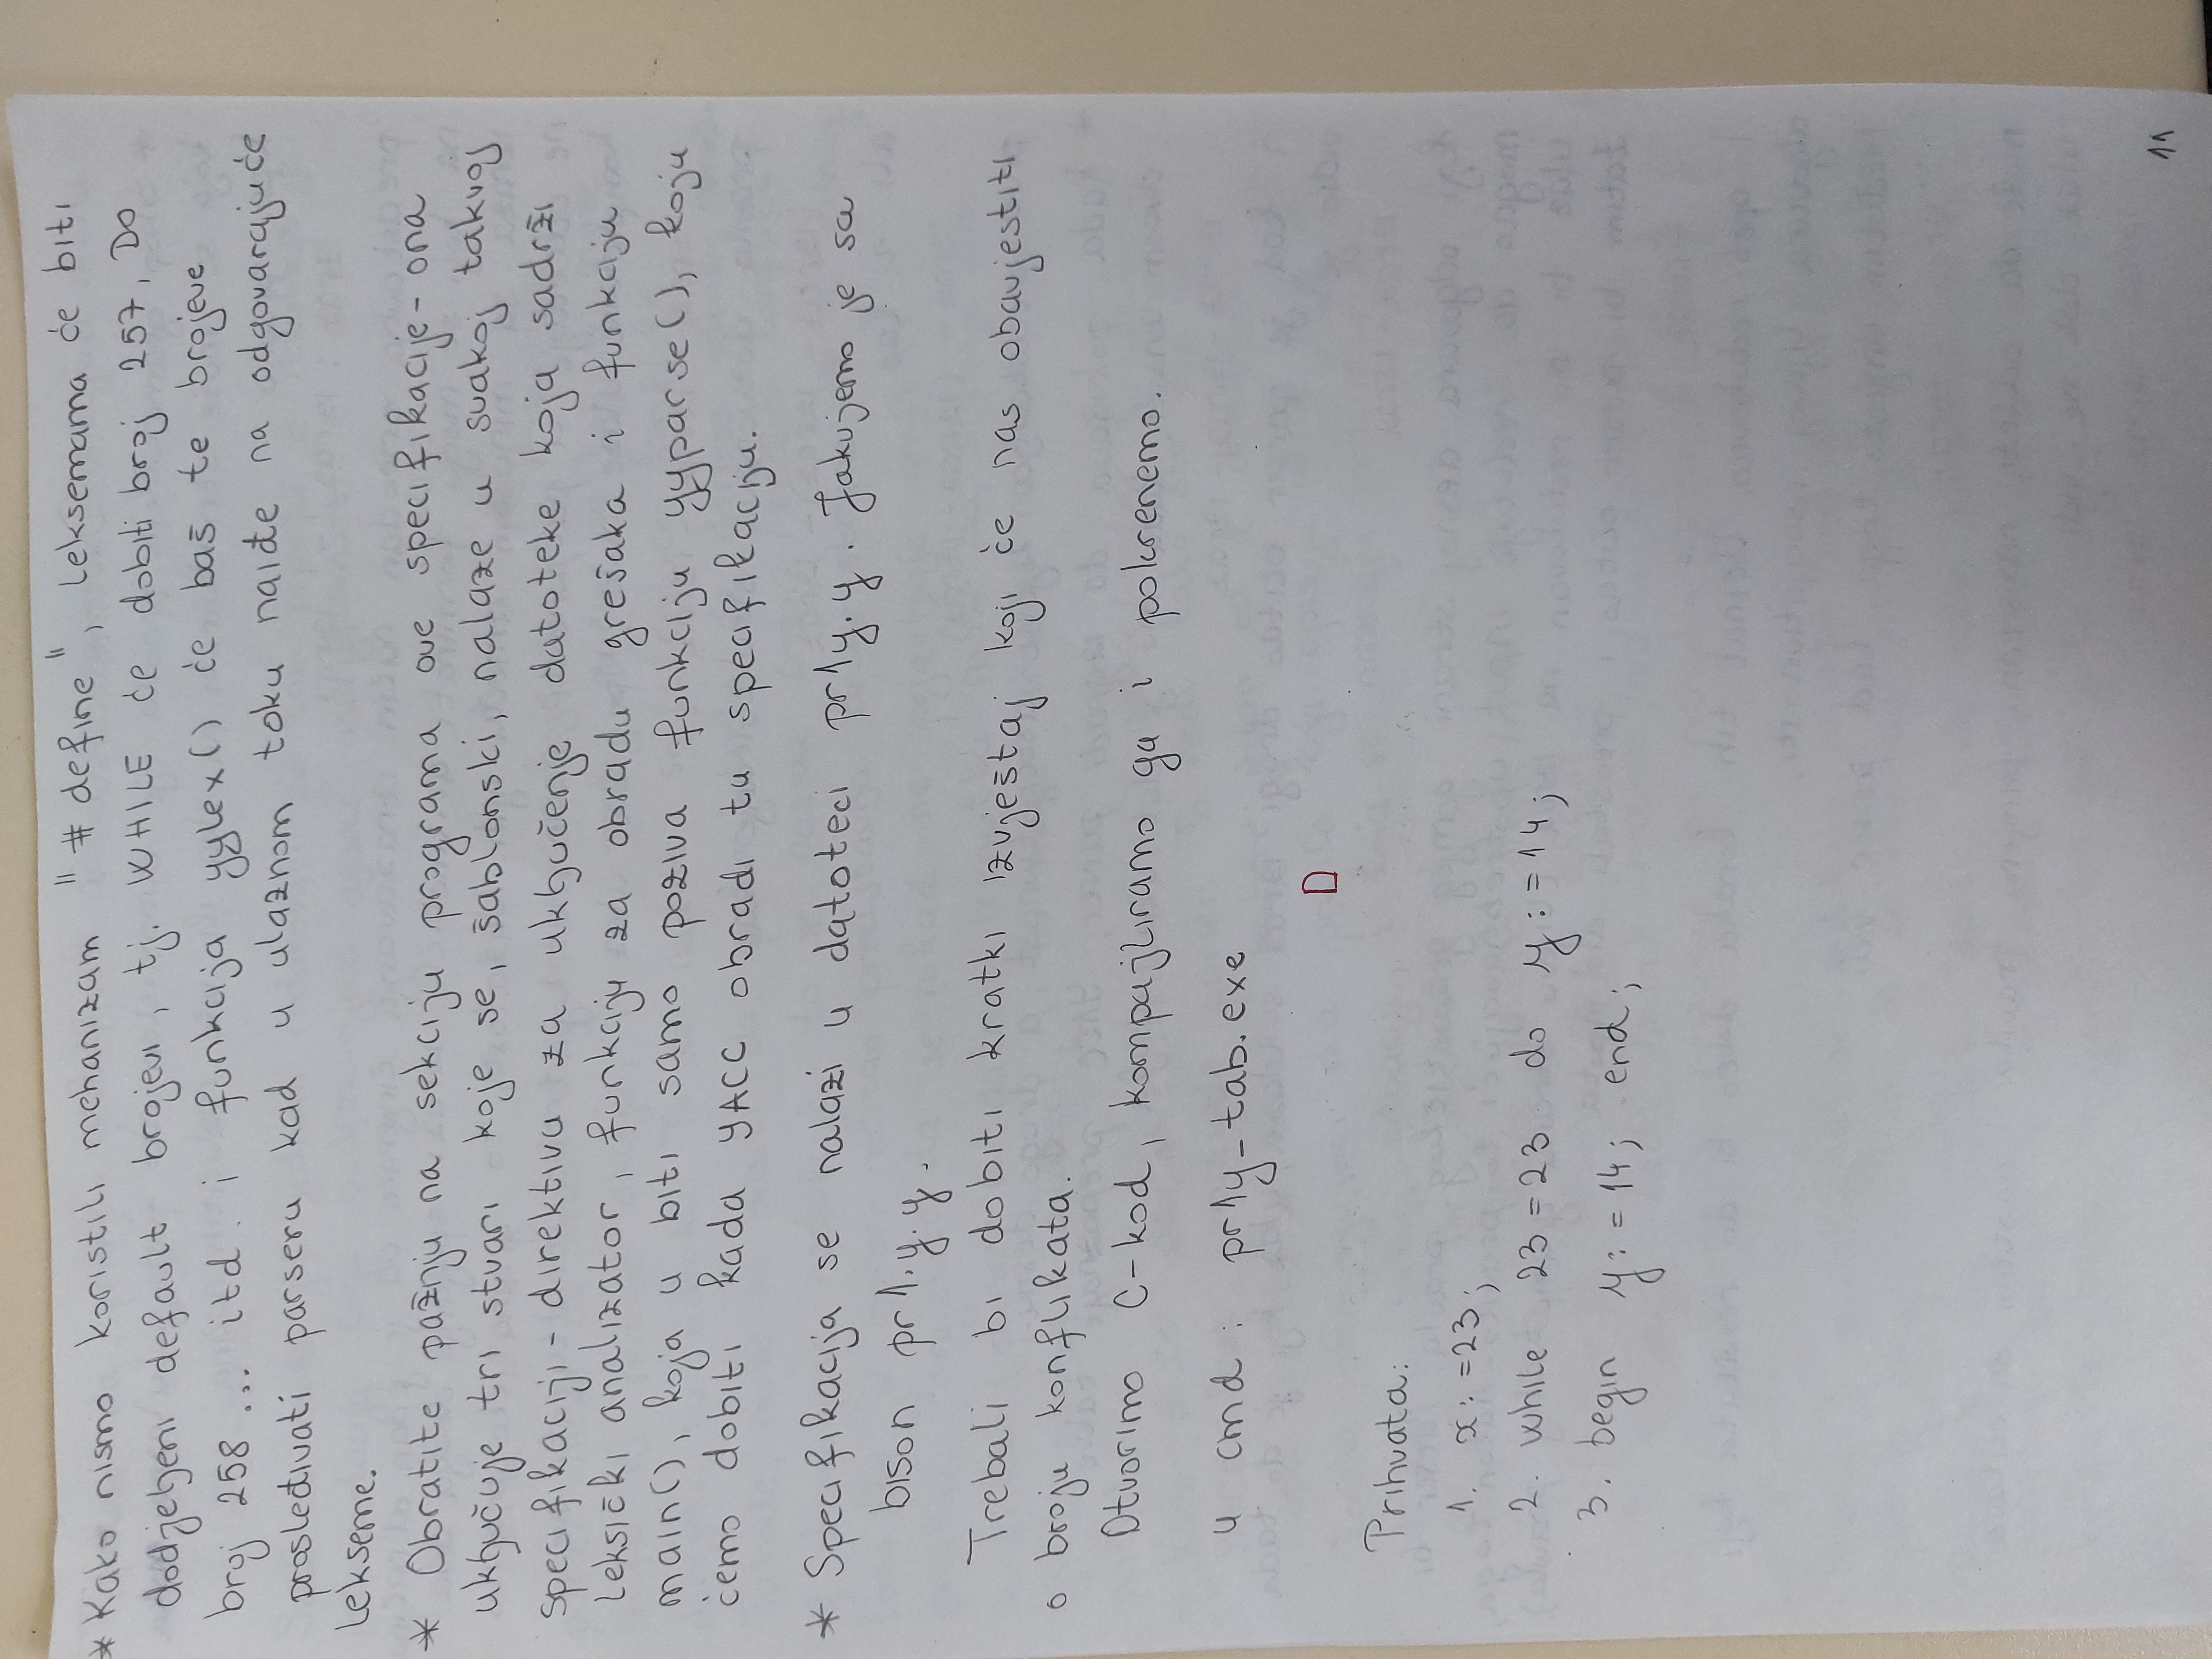 * Kako nismo koristili mehanizam "#define", leksemama će biti
dodjeljeni default brojevi, tj. WHILE će dobiti broj 257, DO
broj 258 ... itd. i funkcija yylex() će baš te brojeve
prosleđivati parseru kad u ulaznom toku naiđe na odgovarajuće
lekseme.
* Obratite pažnju na sekciju programa ove specifikacije - ona
uključuje tri stvari koje se, šablonski, nalaze u svakoj takvoj
specifikaciji - direktivu za uključenje datoteke koja sadrži
leksički analizator, funkciju za obradu grešaka i funkciju
main(), koja u biti samo poziva funkciju yyparse(), koju
ćemo dobiti kada YACC obradi tu specifikaciju.
* Specifikacija se nalazi u datoteci pr1y.y. Jakujemo je sa
bison pr1.y.y.
Trebali bi dobiti kratki izvještaj koji će nas obavjestiti
o broju konflikata.
Otvorimo C-kod, kompajliramo ga i pokrenemo.
u cmd: pr1y-tab.exe
D
Prihvata:
1. x:=23;
2. while 23=23 do y:=14;
3. begin y:=14; end;
11